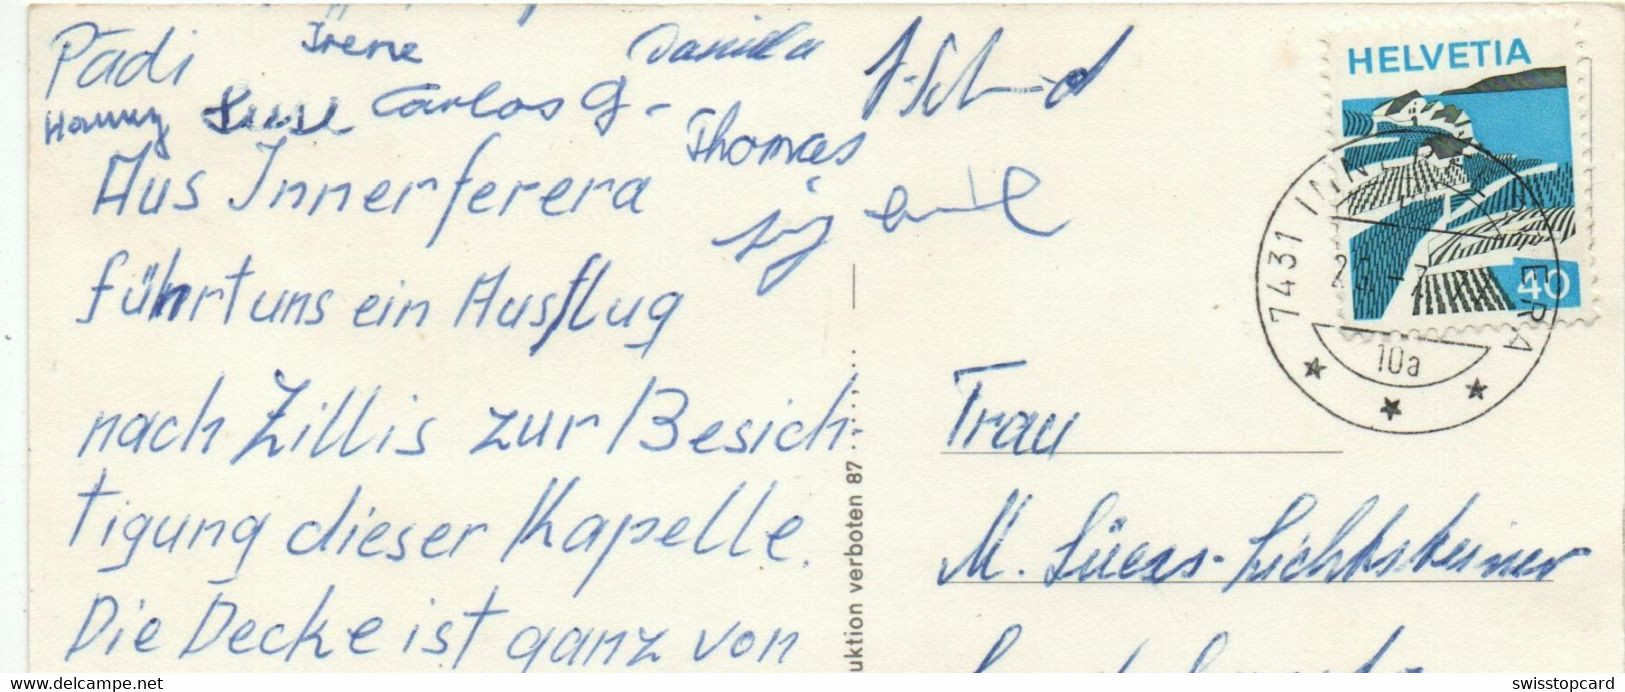 Pädi Irene Daniela
Hanny Carlos G-
Thomas
Aus Innerferera
führt uns ein Ausflug
nach Zillis zur Besich-
tigung dieser Kapelle.
Die Decke ist ganz von
uktion verboten 87
HELVETIA
40
7431 INN ERA
10a
Frau
M. Lichtsteiner
www.delcampe.net
swisstopcard